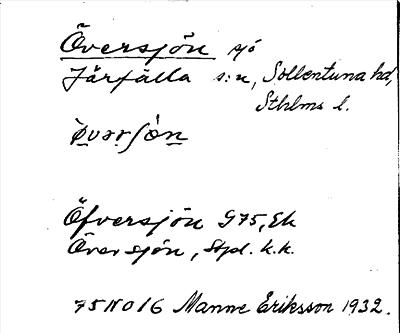 Översjön sjö
Järfälla s:n, Sollentuna hd,
Sthlms l.
Öfversjön G75, Ek
Översjön, Stpl. k.k.
75 N O 16 Manne Eriksson 1932.